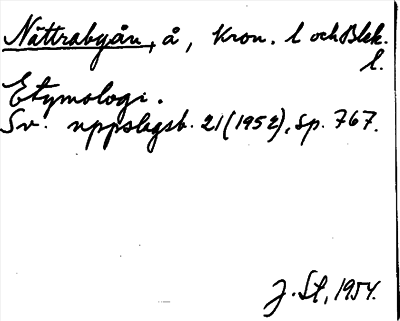 Nättrabyån, å, Kron. l och Blek.
l.
Etymologi.
Sv. uppslagsb. 21 (1952), sp. 767.
J. Sl, 1954.